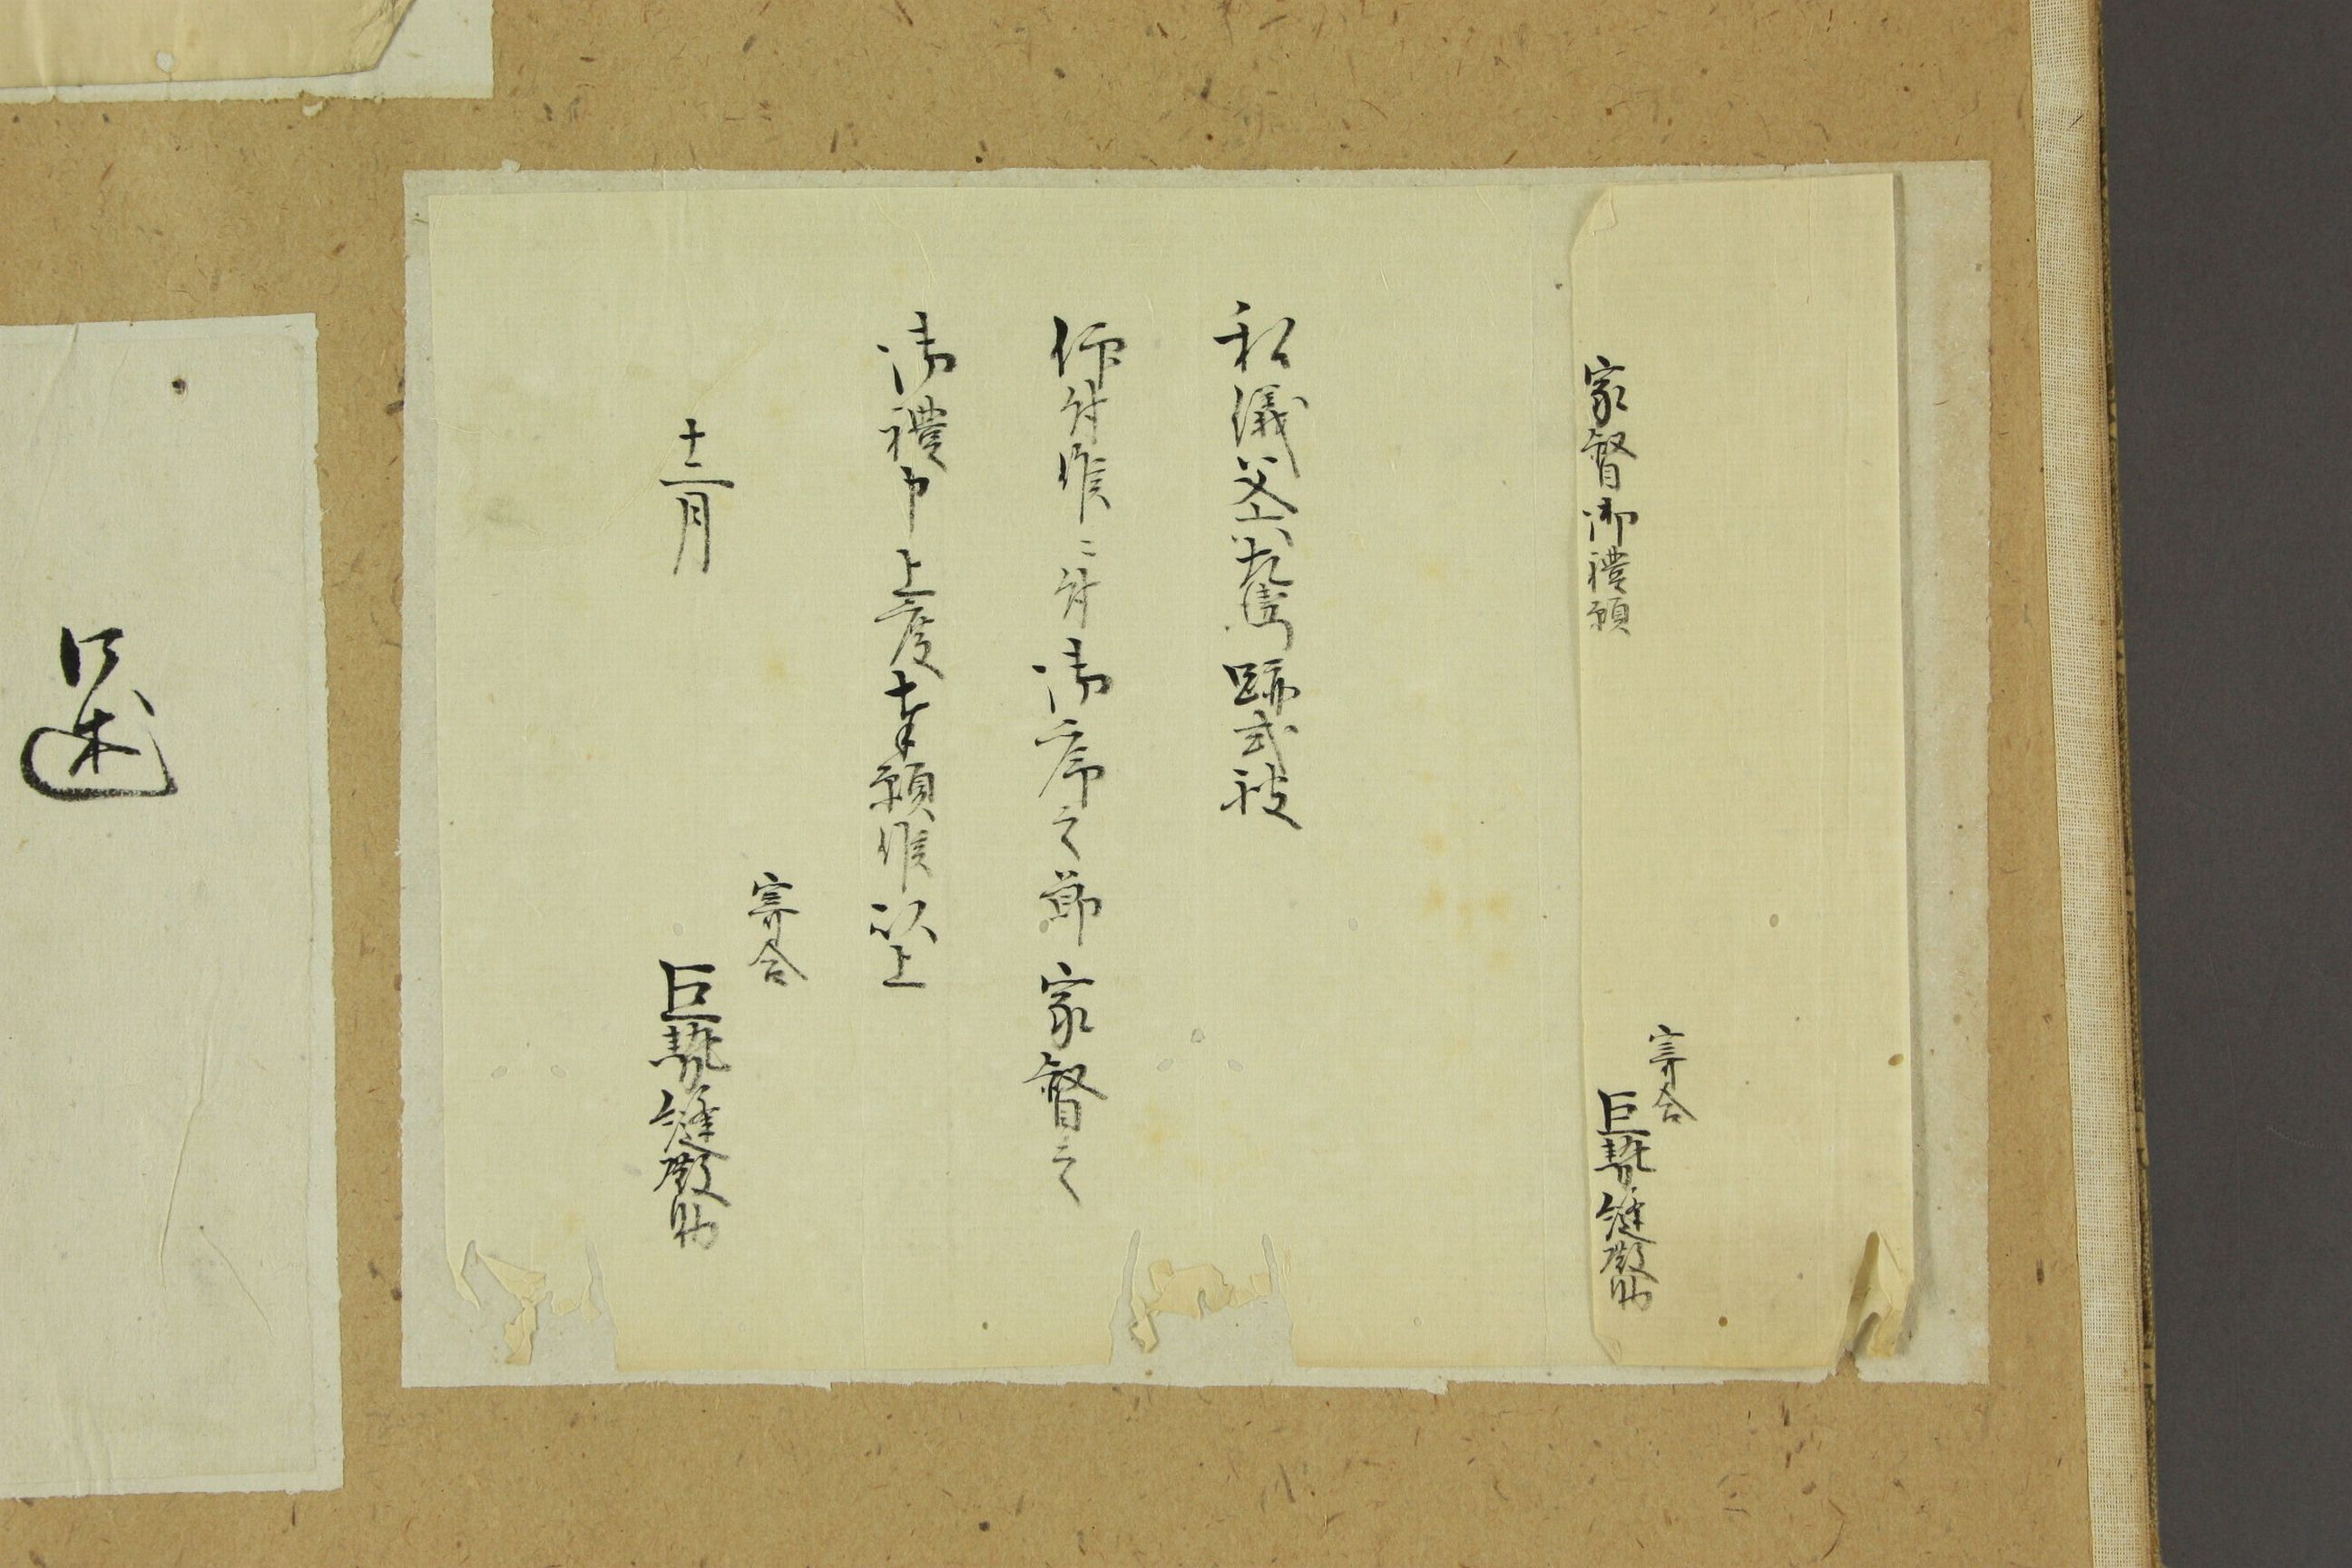 家督御禮願
寄合
巨勢縫殿助
私儀父六左衛門跡式被
仰付候ニ付御序之節家督之
御禮申上度奉願候以上
十二月
寄合
巨勢縫殿助
口述